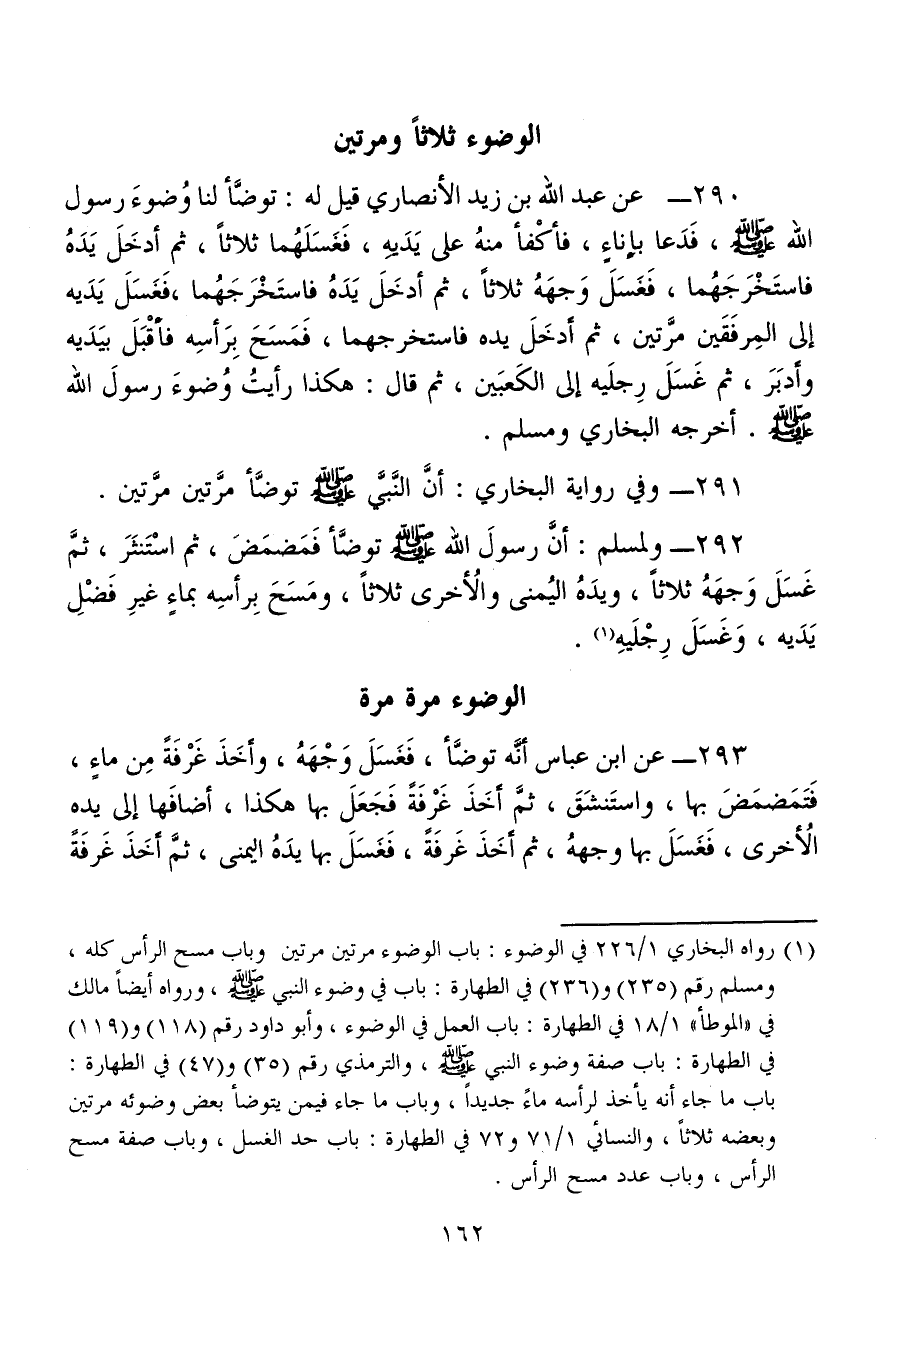 الوضوء ثلاثاً ومرتين
٢٩٠ــ عن عبد الله بن زيد الأنصاري قيل له : توضَّأ لنا وُضوءَ رسول
الله ﷺ ، فَدَعا بإناءٍ ، فأكْفأ منهُ على يَدَيهِ ، فَغَسَلَهُما ثلاثاً ، ثم أدخَلَ يَدَهُ
فاستَخْرَجَهُما ، فَغَسَلَ وَجهَهُ ثلاثاً ، ثم أدخَلَ يَدَهُ فاستَخْرَجَهُما ،فَغَسَلَ يَدَيه
إلى المِرفَقَين مرَّتين ، ثم أدخَلَ يده فاستخرجهما ، فَمَسَحَ بِرَأسِه فأقْبَلَ بيَدَيه
وأدبَرَ ، ثم غَسَلَ رِجلَيه إلى الكَعبَين ، ثم قال : هكذا رأيتُ وُضوءَ رسولَ الله
ﷺ . أخرجه البخاري ومسلم .
٢٩١ــ وفي رواية البخاري : أنَّ النَّبيَّ ﷺ توضَّأ مرَّتين مرَّتين .
٢٩٢ــ ولمسلم : أنَّ رسولَ الله ﷺ توضَّأ فَمَضمَضَ ، ثم استْنَثَرَ ، ثمَّ
غَسَلَ وَجهَهُ ثلاثاً ، ويدَهُ اليُمنى والُأخرى ثلاثاً ، ومَسَحَ بِرأسِه بماءٍ غيرِ فَضْلِ
يَدَيه ، وَغَسَلَ رِجْلَيهِ(١) .
الوضوء مرة مرة
٢٩٣ــ عن ابن عباس أنَّه توضَّأ ، فَغَسَلَ وَجْهَهُ ، وأخَذَ غَرْفَةً مِن ماءٍ ،
فَتَمَضمَضَ بها ، واستَنشَقَ ، ثمَّ أخَذَ غَرْفَةً فَجَعَلَ بها هكذا ، أضافَها إلى يده
الُأخرى ، فَغَسَلَ بها وجههُ ، ثم أخَذَ غَرفَةً ، فَغَسَل بها يدَهُ اليمنى ، ثمَّ أخَذَ غَرفَةً
(١) رواه البخاري ٢٢٦/١ في الوضوء : باب الوضوء مرتين مرتين وباب مسح الرأس كله ،
ومسلم رقم (٢٣٥) و(٢٣٦) في الطهارة : باب في وضوء النبي ﷺ ، ورواه أيضاً مالك
في «الموطأ» ١٨/١ في الطهارة : باب العمل في الوضوء ، وأبو داود رقم (١١٨) و(١١٩)
في الطهارة : باب صفة وضوء النبي ﷺ ، والترمذي رقم (٣٥) و(٤٧) في الطهارة :
باب ما جاء أنه يأخذ لرأسه ماءً جديداً ، وباب ما جاء فيمن يتوضأ بعض وضوئه مرتين
وبعضه ثلاثاً ، والنسائي ٧١/١ و٧٢ في الطهارة : باب حد الغسل ، وباب صفة مسح
الرأس ، وباب عدد مسح الرأس .
١٦٢